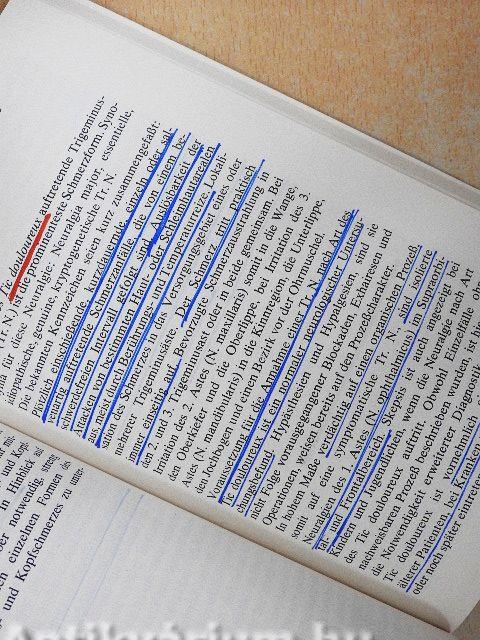 Tic douloureux auftretende Trigeminus-
Tr. N.) ist die prominenteste Schmerzform. Syno-
für diese Neuralgie: Neuralgia major, essentielle,
idiopathische, genuine, kryptogenetische Tr. N.
Die bekannten Kennzeichen seien kurz zusammengefaßt:
Plötzlich einschießende, kurzdauernde, einzeln oder sal-
venartig auftretende Schmerzanfälle, die von einem be-
schwerdefreien Intervall gefolgt sind. Auslösbarkeit der
Attacken von bestimmten Haut- oder Schleimhautarealen
aus meist durch Berührungs- und Temperaturreize. Lokali-
sation des Schmerzes in das Versorgungsgebiet eines oder
mehrerer Trigeminusäste. Der Schmerz tritt praktisch
immer einseitig auf. Bevorzugte Schmerzausstrahlung in
den 2. und 3. Trigeminusast oder in beide gemeinsam. Bei
Irritation des 2. Astes (N. maxillaris) somit in die Wange,
den Oberkiefer und die Oberlippe, bei Irritation des 3.
Astes (N. mandibularis) in die Kinnregion, die Unterlippe,
den Jochbogen und einen Bezirk vor der Ohrmuschel.
Voraussetzung für die Annahme einer Tr. N. nach Art des
Tic douloureux ist ein normaler neurologischer Untersu-
chungsbefund. Hypästhesien und Hypalgesien, sind sie
nicht Folge vorausgegangener Blockaden, Exhairesen und
Operationen, weisen bereits auf den Prozeßcharakter,
somit auf eine symptomatische Tr. N.,
in hohem Maße verdächtig auf einen organischen Prozeß
Neuralgien des 1. Astes (N. ophthalmicus) im Supraorbi-
tal- und Frontalbereich. Skepsis ist auch angezeigt bei
Kindern und Jugendlichen, wenn die Neuralgie nach Art
des Tic douloureux auftritt. Obwohl Einzelfälle
nachweisbaren Prozeß beschrieben wurden, ist
die Notwendigkeit erweiterter Diagnostik
Tic douloureux ist vornehmlich
älterer Patienten, bei
oder noch später eintreten
und Kopf-
in Hinblick auf
notwendig, streng
einzelnen Formen des
und Kopfschmerzes zu unter-
Antikvárium.hu